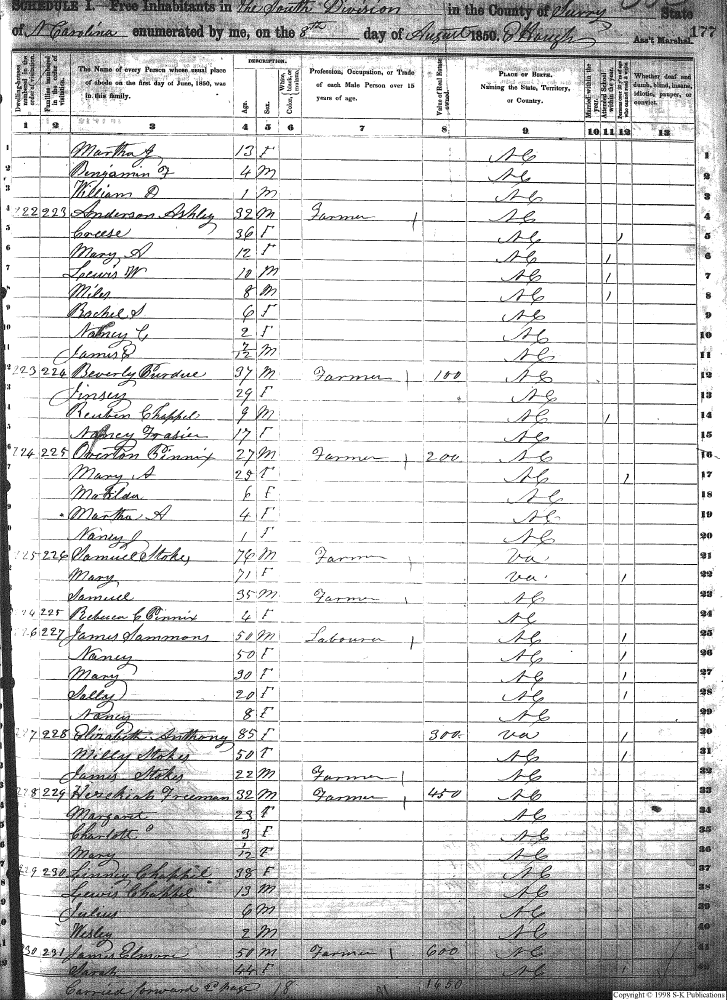 SCHEDULE I.—Free Inhabitants in The South Division in the County of Surry State
of N Carolina enumerated by me, on the 8th day of August 1850. Ass't Marshal. 177
Dwelling-houses numbered in the order of visitation. Families numbered in the order of visitation. The Name of every Person whose usual place of abode on the first day of June, 1850, was in this family. DESCRIPTION. Age. Sex. Color, White, black, or mulatto. Profession, Occupation, or Trade of each Male Person over 15 years of age. Value of Real Estate owned. PLACE OF BIRTH. Naming the State, Territory, or Country. Married within the year. Attended School within the year. Whether deaf and dumb, blind, insane, idiotic, pauper, or convict.
1 2 3 4 5 6 7 8 9 10 11 12 13
1 Martha J 13 F NC 1
2 Benjamin F 4 M NC 2
3 William D 1 M NC 3
4 222 223 Anderson Ashley 32 M Farmer NC 4
5 Creese 36 F NC 1 5
6 Mary A 12 F NC 1 6
7 Lewis W 10 M NC 1 7
8 Miles 8 M NC 1 8
9 Rachel S 6 F NC 9
10 Nancy C 2 F NC 10
11 James E 7/12 M NC 11
12 223 224 Beverly Purdue 37 M Farmer 100 NC 12
13 Jinsey 29 F NC 13
14 Reuben Chappel 9 M NC 1 14
15 Nancy Frasier 17 F NC 15
16 224 225 Overton Pinnix 27 M Farmer 200 NC 16
17 Mary A 25 F NC 1 17
18 Matilda 6 F NC 18
19 Martha A 4 F NC 19
20 Nancy J 1 F NC 20
21 225 226 Samuel Stokes 76 M Farmer Va. 21
22 Mary 71 F Va. 1 22
23 Samuel 35 M Farmer NC 23
24 224 225 Rebecca C Pinnix 4 F NC 24
25 226 227 James Sammons 50 M Labourer NC 1 25
26 Nancy 50 F NC 1 26
27 Mary 30 F NC 1 27
28 Sally 20 F NC 1 28
29 Nancy 8 F NC 29
30 227 228 Elizabeth Anthony 85 F 300 Va 1 30
31 Milly Stokes 50 F NC 1 31
32 James Stokes 22 M Farmer NC 32
33 228 229 Hezekiah Freeman 32 M Farmer 450 NC 33
34 Margaret 23 F NC 34
35 Charlott 3 F NC 35
36 Mary 1/12 F NC 36
37 229 230 Linney Chappel 38 F NC 37
38 Lewis Chappel 13 M NC 38
39 Julius 6 M NC 39
40 Wesley 2 M NC 40
41 230 231 James Elmore 50 M Farmer 600 NC 41
42 Sarah 44 F NC 42
Carried forward to page 18 1650
Copyright © 1998 S-K Publications